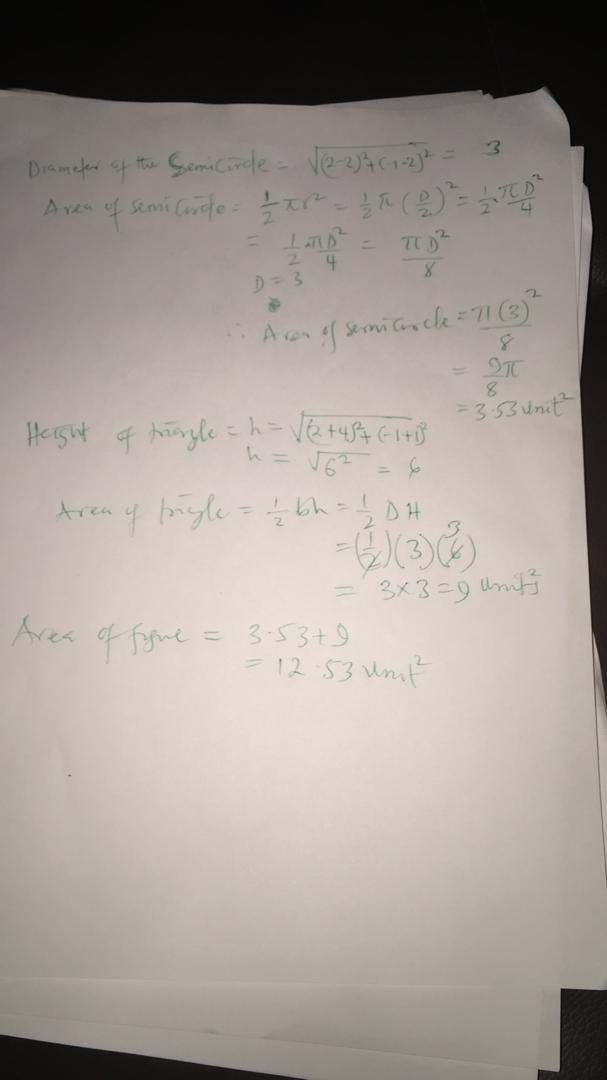 Diameter of the Semicircle = √(2-2)²+(-1-2)² = 3
Area of semicircle = 1/2 πr² = 1/2 π (D/2)² = 1/2 · πD²/4
= 1/2 · πD²/4 = πD²/8
D = 3
∴ Area of semicircle = π(3)²/8
= 9π/8
= 3.53 unit²
Height of triangle = h = √(2+4)²+(-1+1)²
h = √6² = 6
Area of = 1/2 bh = 1/2 DH
= (1/2)(3)(6) 3
= 3×3 = 9 units²
Area of = 3.53+9
= 12.53 unit²